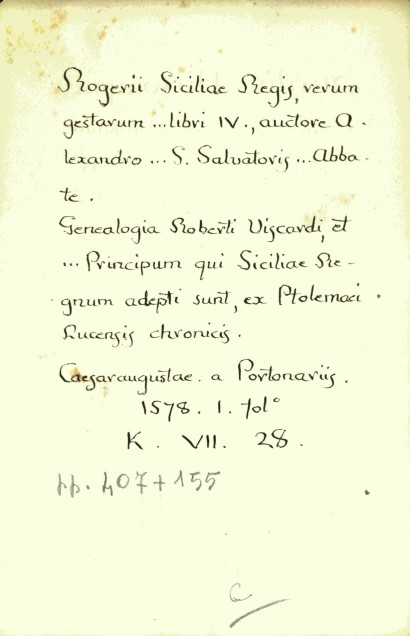 Rogerii Siciliae Regis, rerum
gestarum ... libri IV., auctore A-
lexandro ... S. Salvatoris ... Abba-
te.
Genealogia Roberti Viscardi, et
... Principum qui Siciliae Re-
gnum adepti sunt, ex Ptolemaei
Lucensis chronicis.
Caesaraugustae. a Portonariis.
1578. 1. fol°
K. VII. 28.
pp. 407+155
C